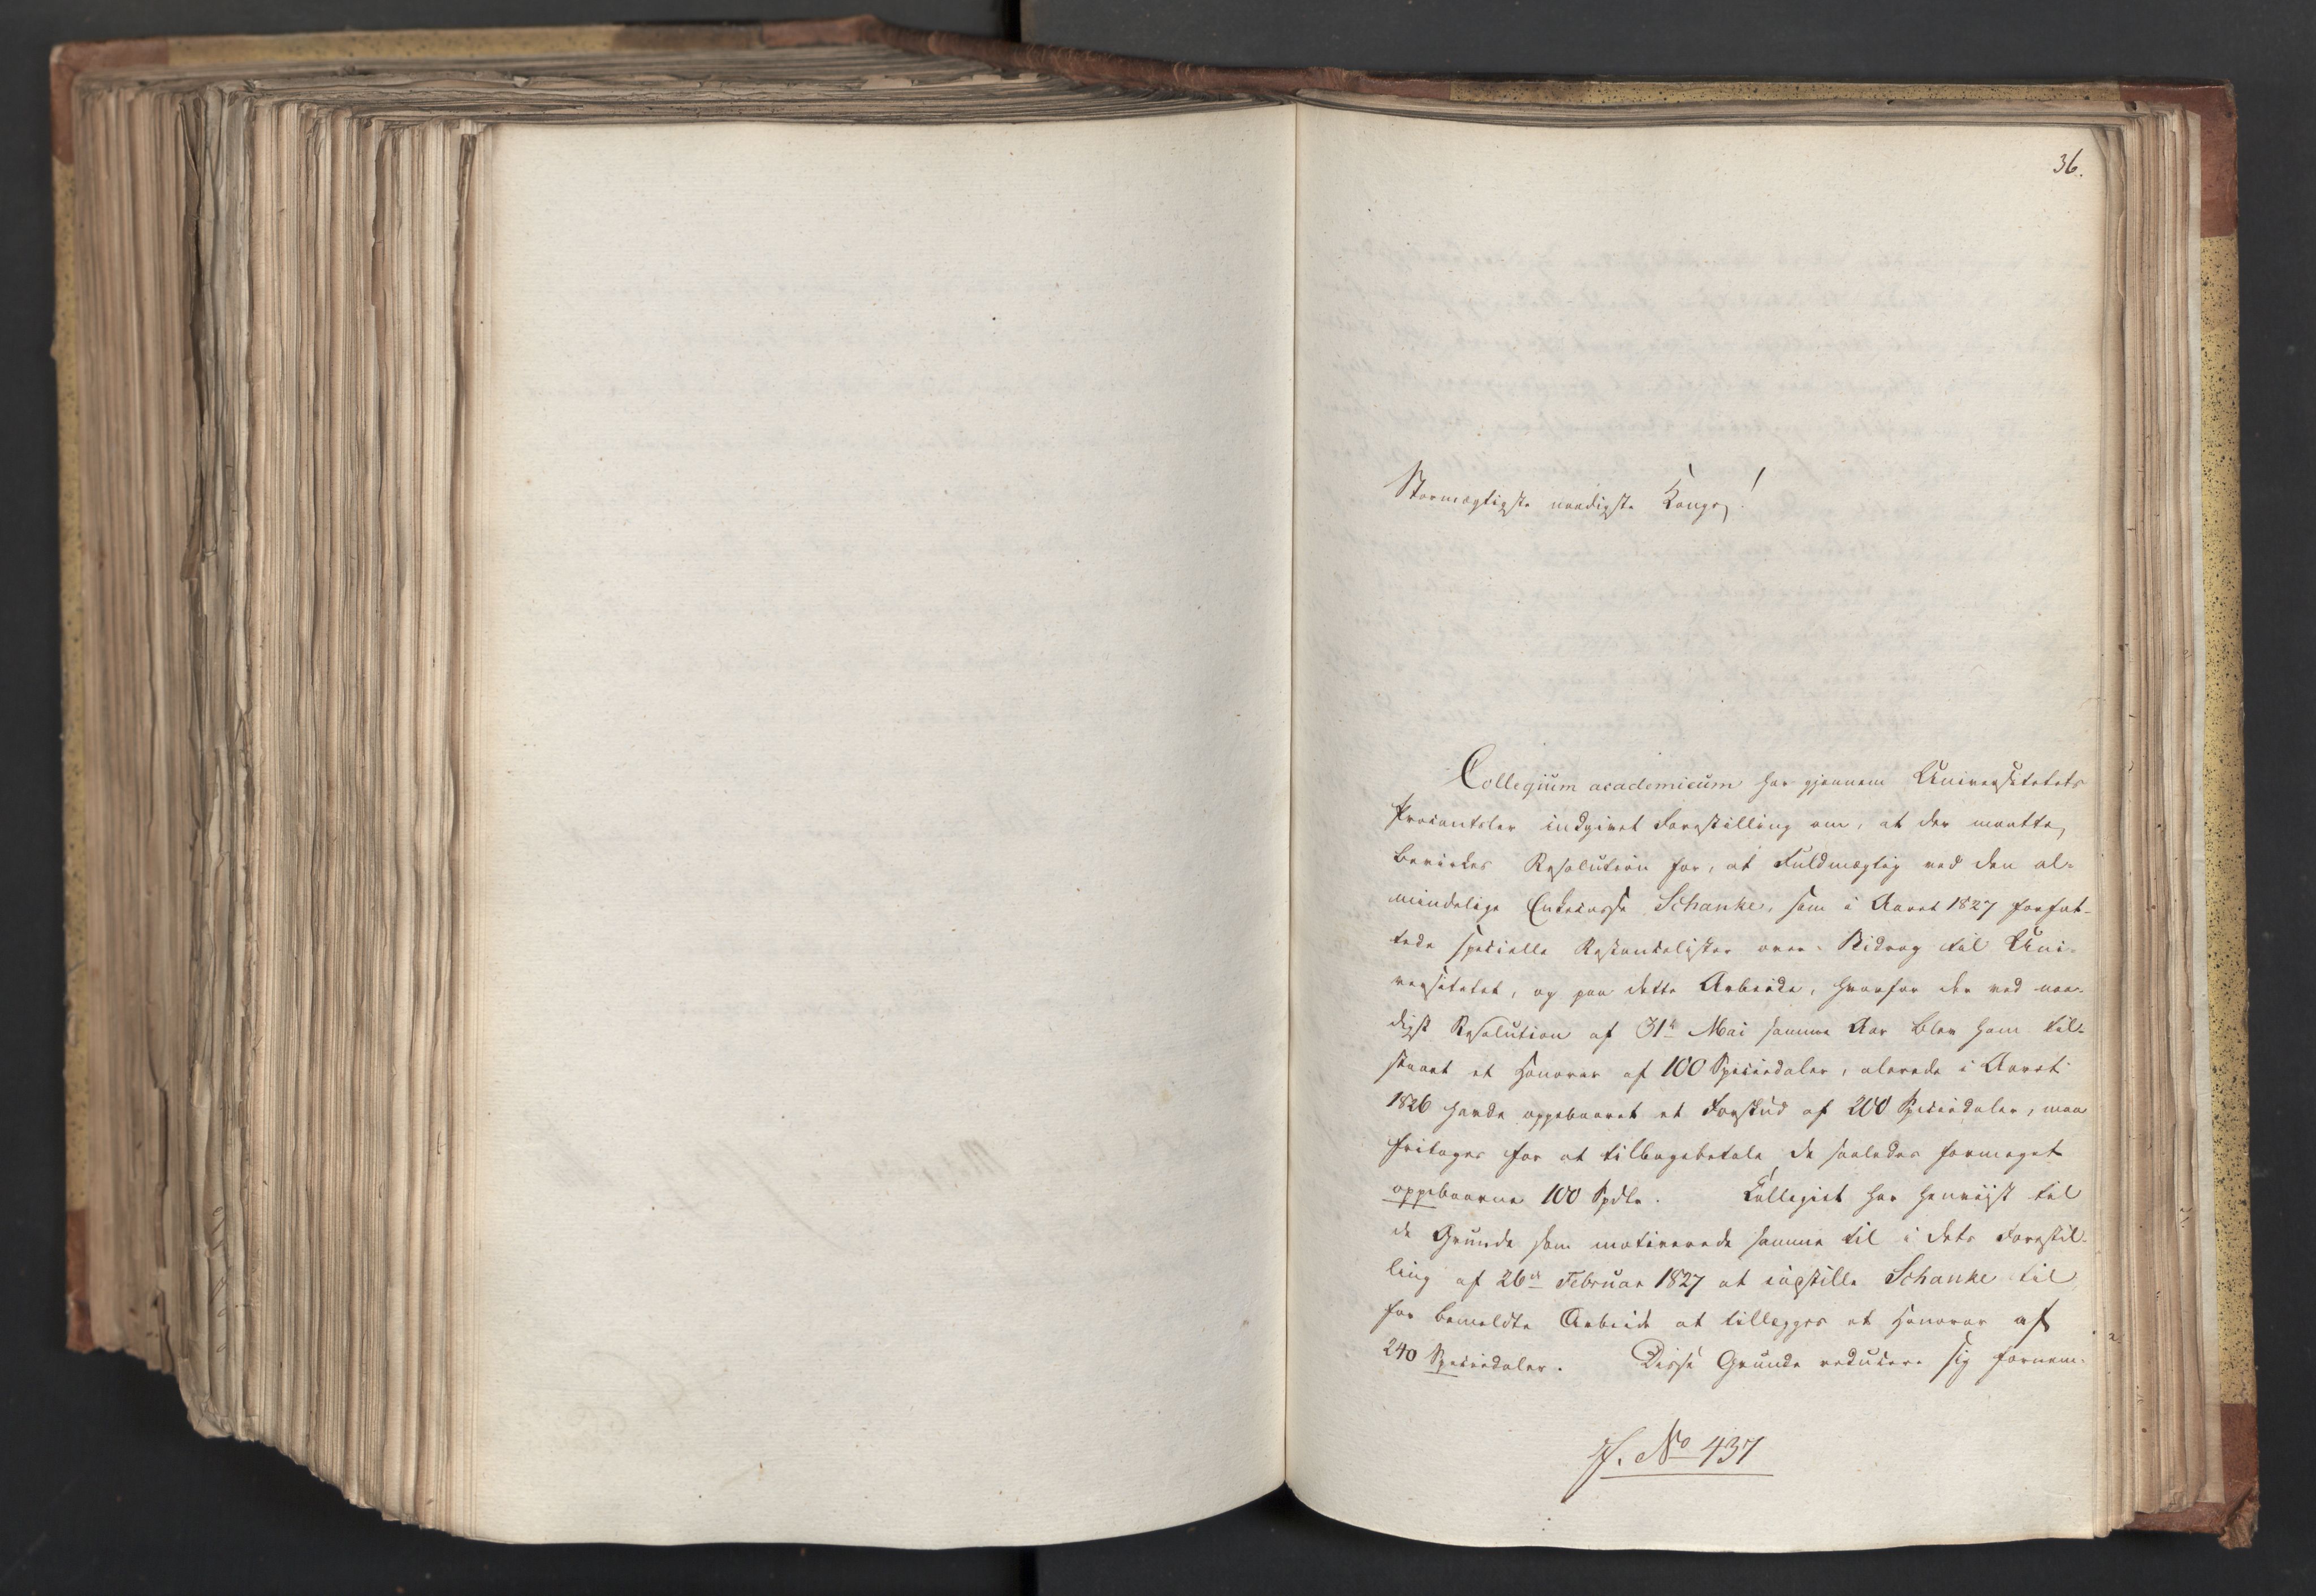 36.
Stormægtigste naadigste Konge!
Collegium academicum har gjennem Universitetets
Procantsler indgivet Forestilling om, at der maatte
bevirkes Resolution for, at Fuldmægtig ved den al-
mindelige Enkekasse Schanke, som i Aaret 1827 forfat-
tede specielle Restancelister over Bidrag til Uni-
versitetet, og paa dette Arbeide, hvorfor der ved naa-
digst Resolution af 31te Mai samme Aar blev ham til-
staaet et Honorar af 100 Speciedaler, alerede i Aaret
1826 havde oppebaaret et Forskud af 200 Speciedaler, maa
fritages for at tilbagebetale de saaledes formeget
oppebaarne 100 Spdlr. Collegiet har henviist til
de Grunde som motiverede samme til i dets Forestil-
ling af 26de Februar 1827 at indstille Schanke til
for bemeldte Arbeide at tillægges et Honorar af
240 Speciedaler. Disse Grunde reducere sig fornem-
No 437